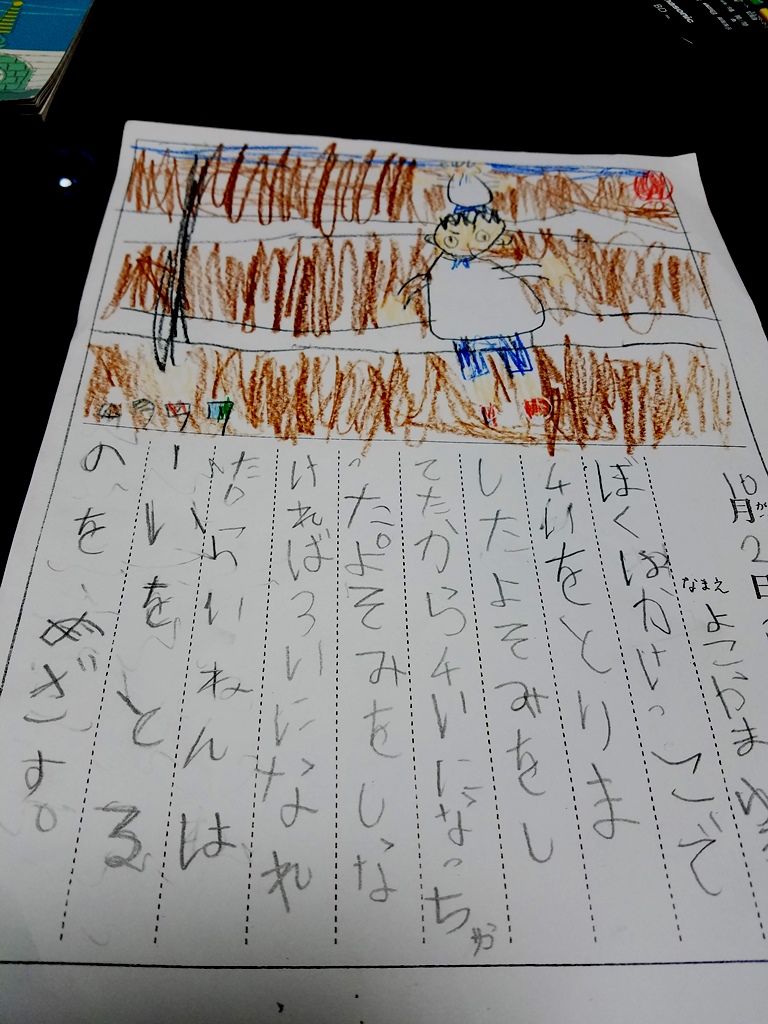 Panasonic
BD
10月2日
なまえ よこやま
ぼくはかけっこで
4いをとりま
したよそみをし
てたから4いになっちゃ
った。よそみをしな
ければ3いになれ
た。らいねんは
1いをとる
のをめざす。